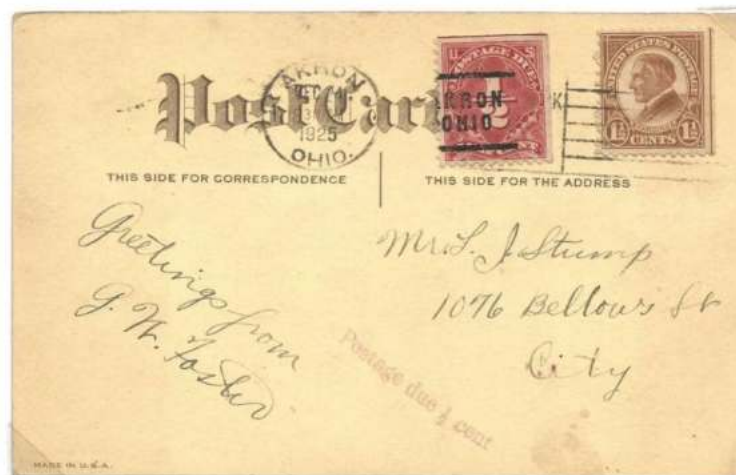 Post Card
AKRON
DEC
1925
OHIO.
U S
POSTAGE DUE
1/2
CENT
AKRON
OHIO
UNITED STATES POSTAGE
1½ CENTS 1½
THIS SIDE FOR CORRESPONDENCE
THIS SIDE FOR THE ADDRESS
Greetings from
G. W. Foster
Mr. L. J. Stump
1076 Bellows St
City
Postage due ½ cent
MADE IN U.S.A.